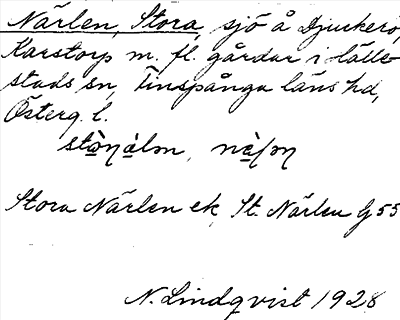 Närlen, Stora, sjö å Djurkerö,
Karstorp m. fl. gårdar i Hälle-
stads sn, Finspånga läns hd,
Österg. l.
Stora Närlen ek, St. Närlen G 55
N. Lindqvist 1928